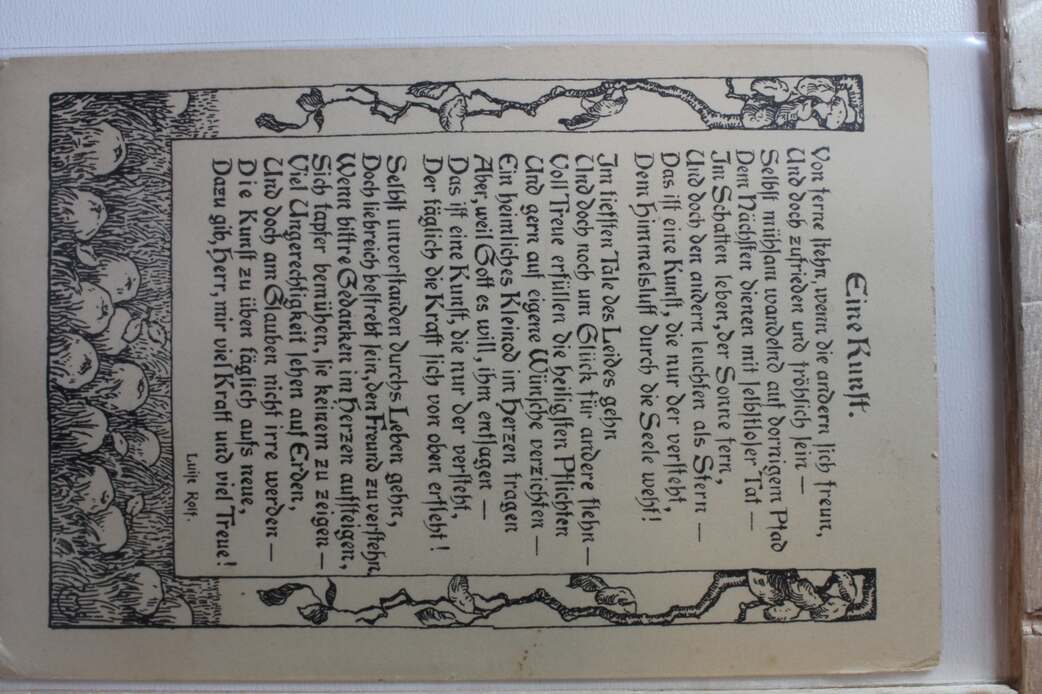 Eine Kunst.
Von ferne stehn, wenn die andern sich freun,
Und doch zufrieden und fröhlich sein —
Selbst mühsam wandelnd auf dornigem Pfad
Dem Nächsten dienen mit selbstloser Tat —
Im Schatten leben, der Sonne fern,
Und doch den andern leuchten als Stern —
Das ist eine Kunst, die nur der versteht,
Dem Himmelsluft durch die Seele weht!
Im tiefsten Tale des Leides gehn
Und doch noch um Glück für andere flehn —
Voll Treue erfüllen die heiligsten Pflichten
Und gern auf eigene Wünsche verzichten —
Ein heimliches Kleinod im Herzen tragen
Aber, weil Gott es will, ihm entsagen —
Das ist eine Kunst, die nur der versteht,
Der täglich die Kraft sich von oben erfleht!
Selbst unverstanden durchs Leben gehn,
Doch liebreich bestrebt sein, den Freund zu verstehn,
Wenn bittre Gedanken im Herzen aufsteigen,
Sich tapfer bemühen, sie keinem zu zeigen —
Viel Ungerechtigkeit sehen auf Erden,
Und doch am Glauben nicht irre werden —
Die Kunst zu üben täglich aufs neue,
Dazu gib, Herr, mir viel Kraft und viel Treue!
Luise